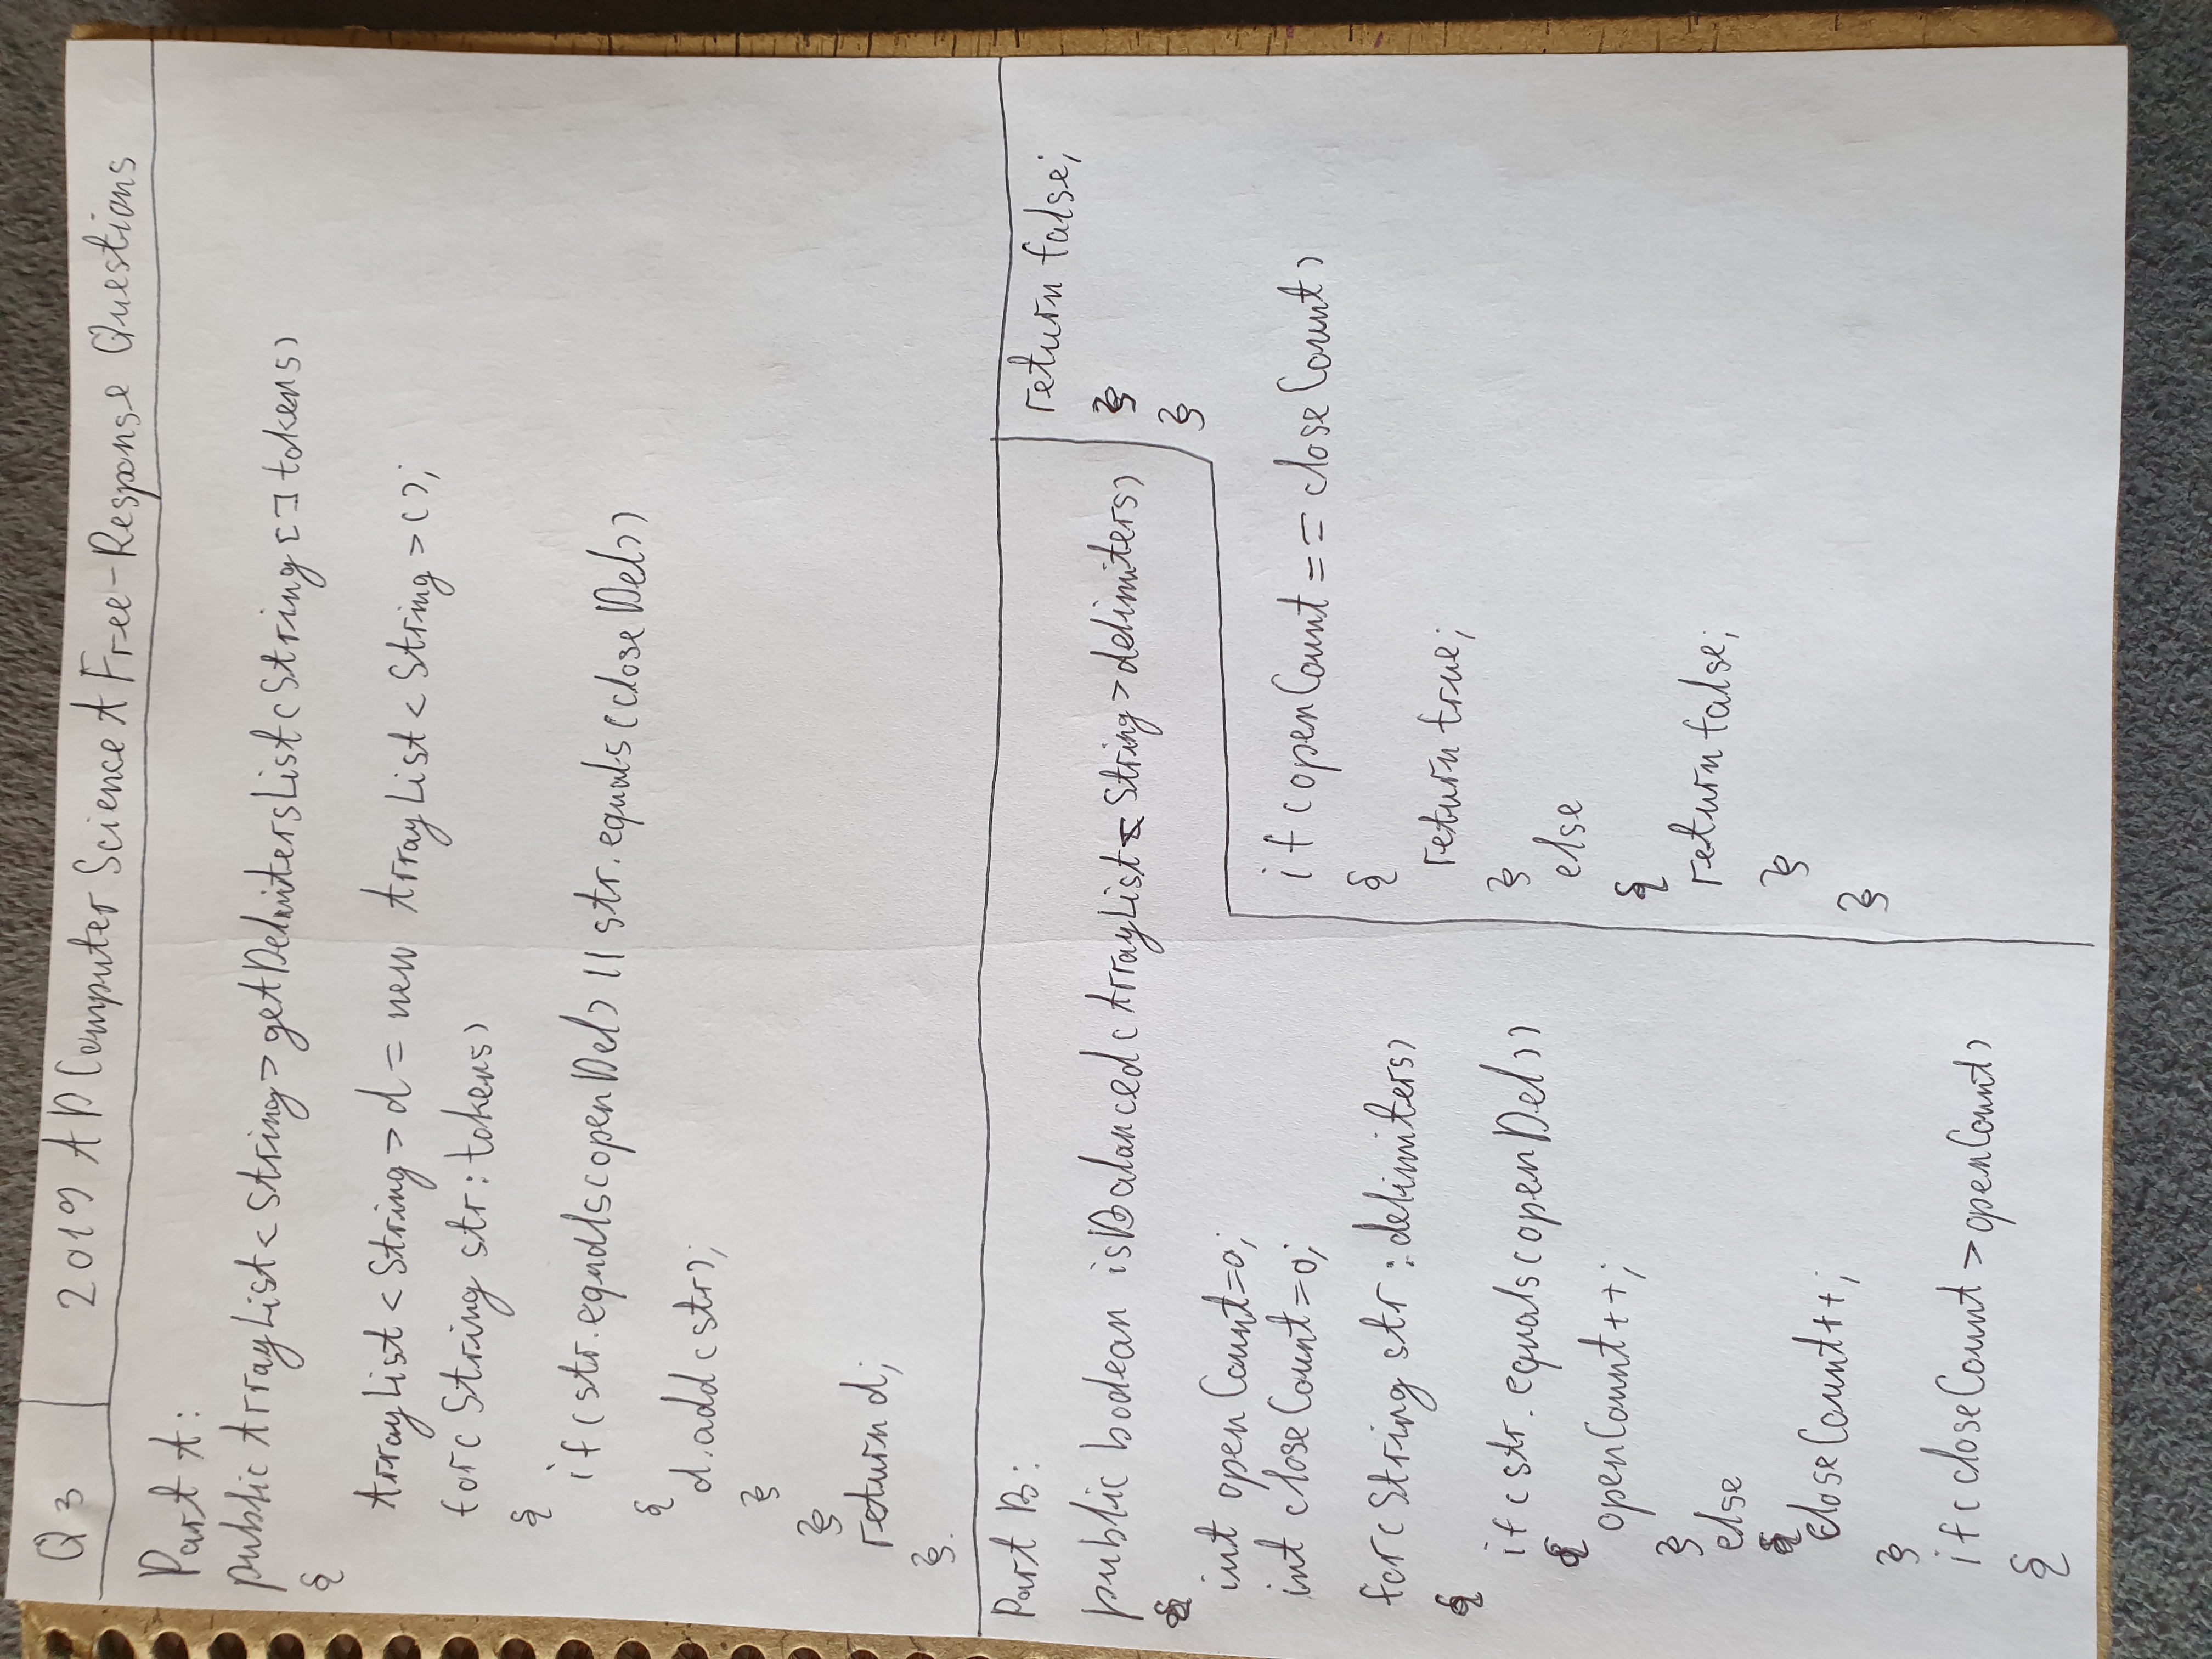 Q3
2019 AP Computer Science A Free-Response Questions
Part A:
public ArrayList<String> getDelimitersList(String[] tokens)
{
ArrayList<String> d = new ArrayList<String>();
for(String str: tokens)
{
if(str.equals(openDel) || str.equals(closeDel))
{
d.add(str);
}
}
return d;
}
Part B:
public boolean isBalanced(ArrayList<String> delimiters)
{
int openCount=0;
int closeCount=0;
for(String str: delimiters)
{
if(str.equals(openDel))
{
openCount++;
}
else
{
closeCount++;
}
if(closeCount > openCount)
{
return false;
}
}
if(openCount == closeCount)
{
return true;
}
else
{
return false;
}
}